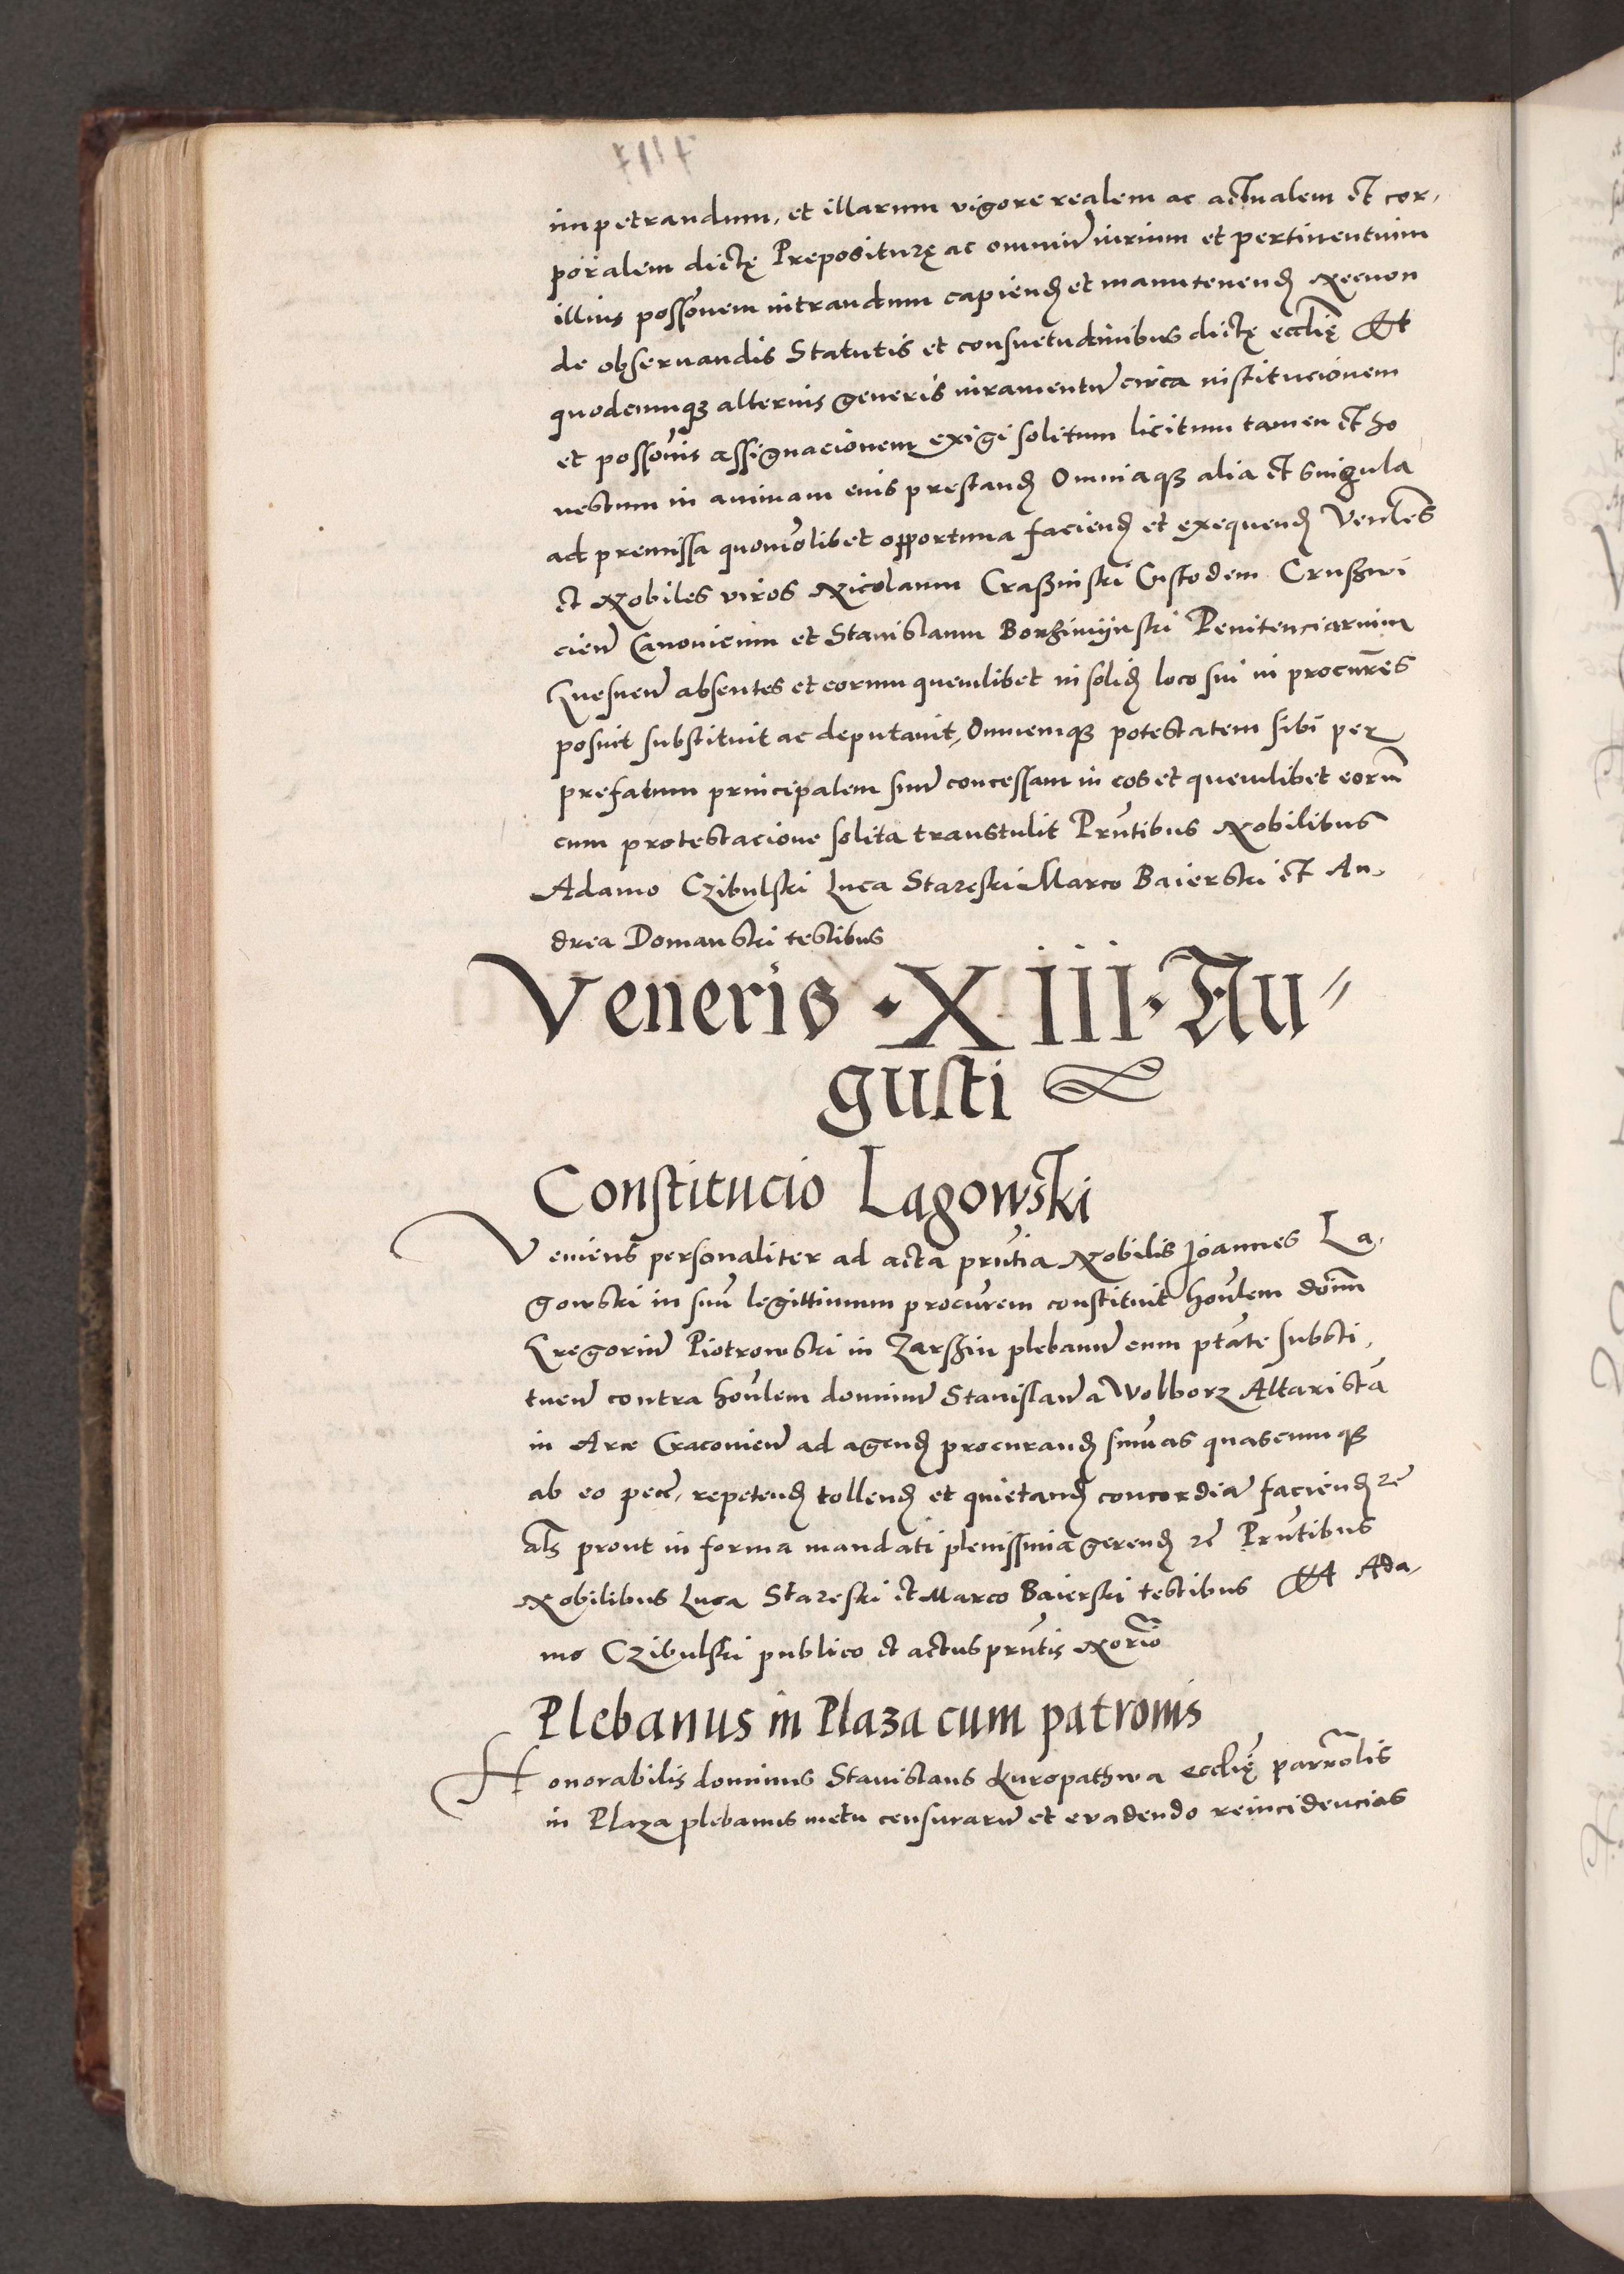 impetrandum, et illarum vigore realem ac actualem et cor,
poralem dictę Prepositurę ac omniu͂ iurium et pertinentium
illius posso͂nem intrandum capiend̨ et manutenend̨ Necnon
de obseruandis Statutis et consuetudinibus dictę eccl͂ię Et
quodcunqȝ alterius generis iuramentu͂ circa institucionem
et posso͂nis assignacionem exigi solitum licitum tamen et ho
nestum in animam eius prestand̨ Omniaqȝ alia et singula
ad premissa quomo͂libet opportuna faciend̨ et exequend̨ Ven͂les
et Nobiles viros Nicolaum Craßinski Custodem Crusßwi
cien͂ Canonicum et Stanislaum Borzimijnski Penitenciarium
Gnesnen͂ absentes et eorum quemlibet in solid̨ loco sui in procur͂es
posuit substituit ac deputauit, Omnemqȝ potestatem sibi per
prefatum principalem suu͂ concessam in eos et quemlibet eoru͂
cum protestacione solita transtulit Pru͂tibus Nobilibus
Adamo Czibulski Luca Stareski Marco Baierski et An,
drea Domanski testibus
Veneris · XIII · Au⸗
gusti
Constitucio Lagowski
Veniens personaliter ad acta prn͂tia Nobilis Joannes La,
gowski in suu͂ legittimum procur͂em constituit hon͂lem do͂mm
Gregoriu͂ Piotrowski in Zarszin plebanu͂ cum pt͂ate substi,
tuen͂ contra hon͂lem dominu͂ Stanislau͂ a Wolborz Altarista͂
in Arce Cracouien͂ ad agend̨ procurand̨ sum͂as quascumqȝ
ab eo pec͂, repetend̨ tollend̨ et quietand̨ concordia͂ faciend̨ rc͂
al͂s prout in forma mandati plenissima gerend̨ rc͂ Prn͂tibus
Nobilibus Luca Stareski et Marco Baierski testibus Et Ada,
mo Czibulski publico et actus prn͂tis Nor͂io
Plebanus in Plaza cum patronis
Honorabilis dominus Stanislaus Kuropathwa eccl͂ię parro͂lis
in Plaza plebanus metu censuraru͂ et euadendo reincidencias